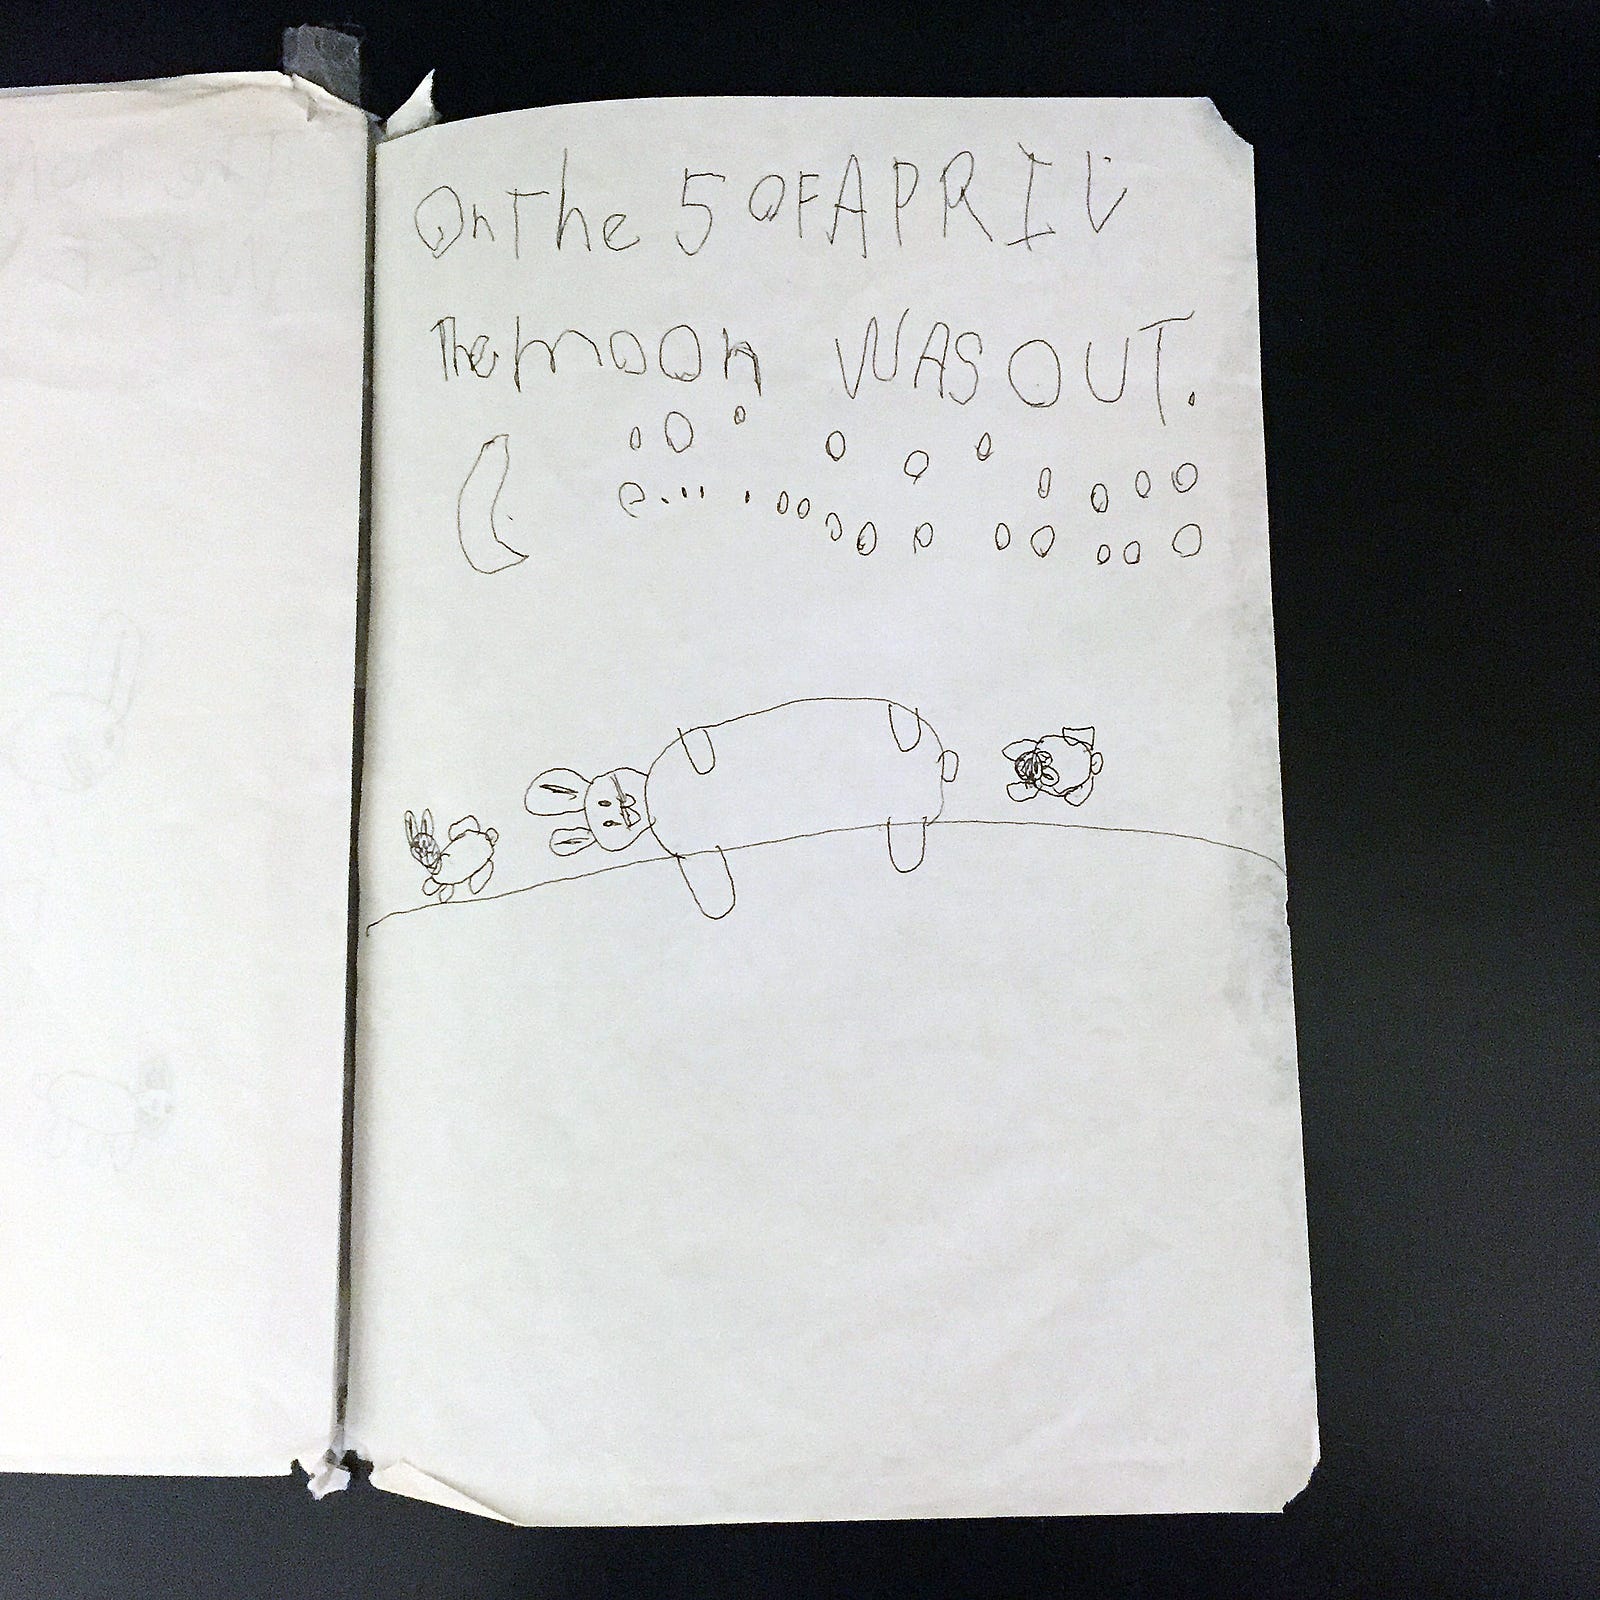 On The 5 OF APRIL
The moon WAS OUT.